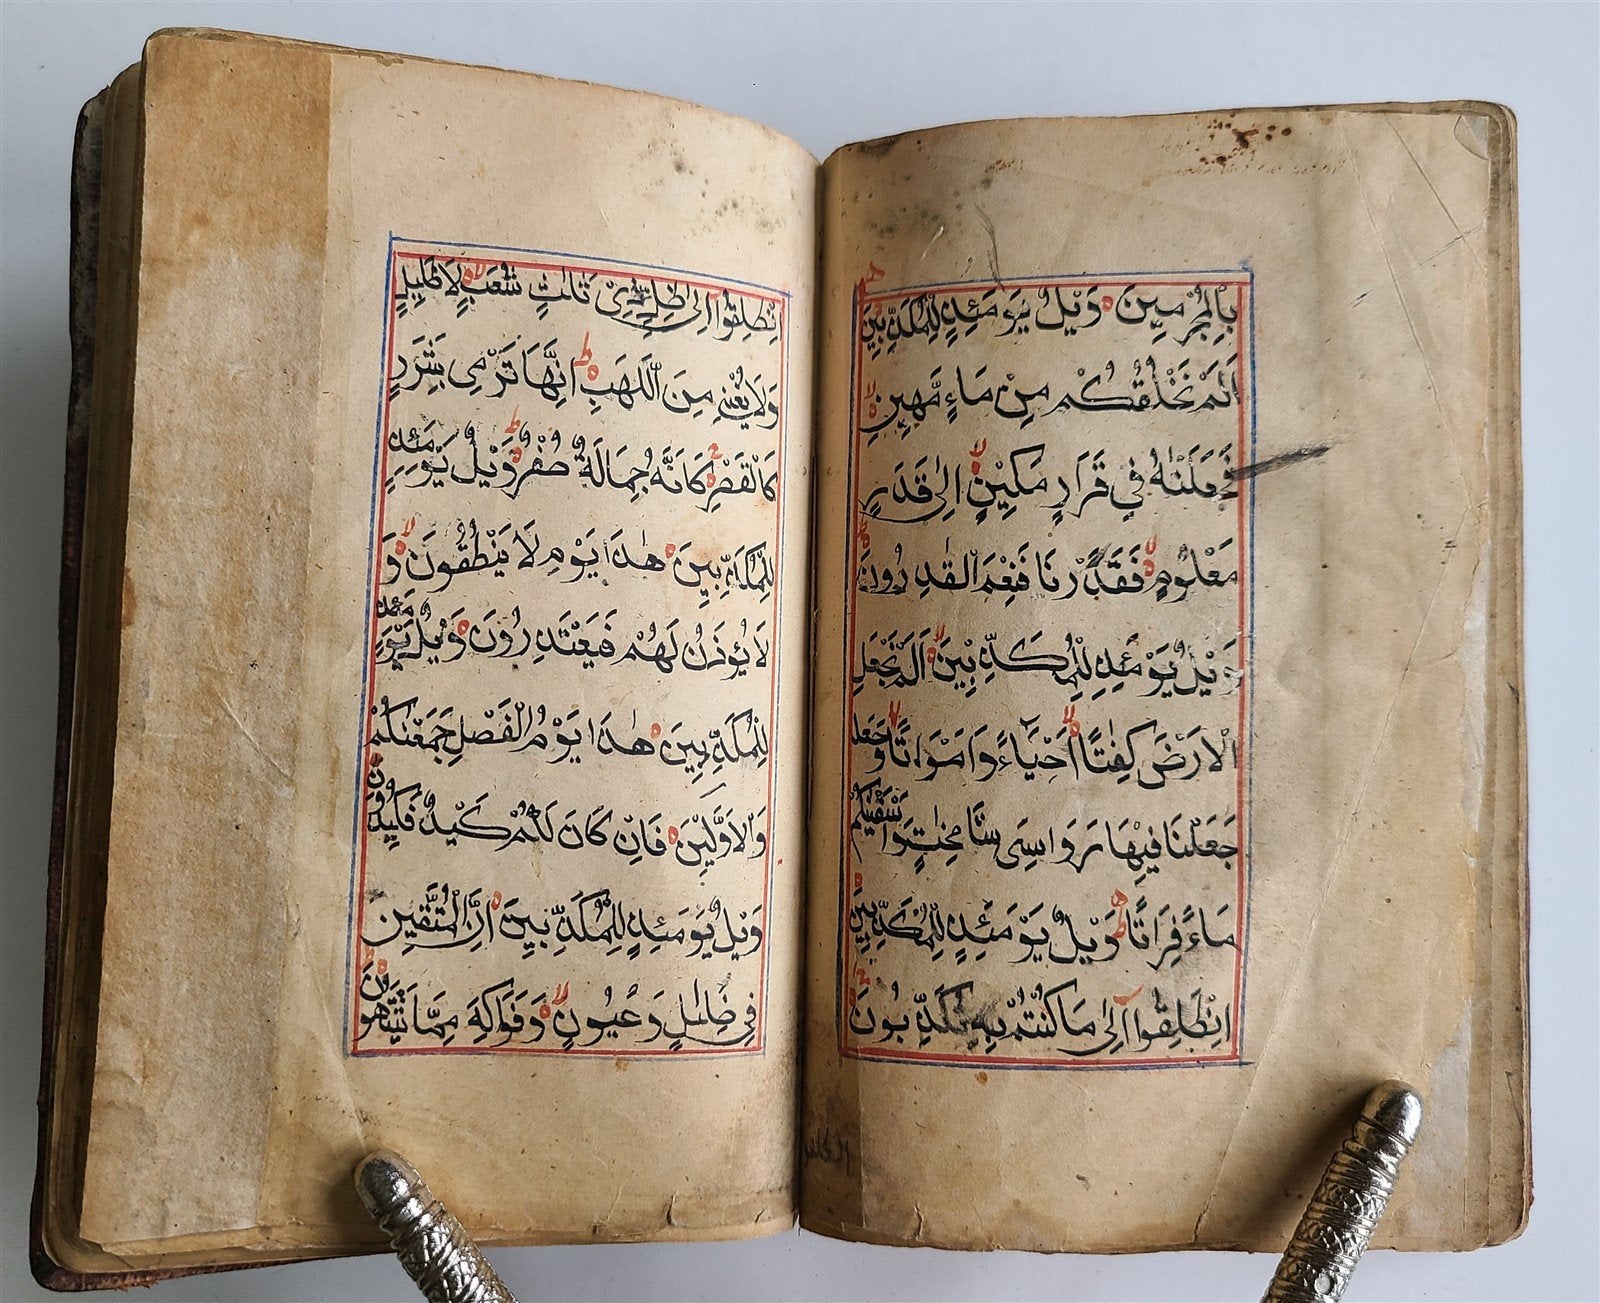 بِالْمُجْرِمِينَ وَيْلٌ يَوْمَئِذٍ لِلْمُكَذِّبِينَ
اَلَمْ نَخْلُقْكُمْ مِنْ مَاءٍ مَهِينٍ
فَجَعَلْنٰهُ فِي قَرَارٍ مَكِينٍ اِلٰى قَدَرٍ
مَعْلُومٍ فَقَدَّرْنَا فَنِعْمَ الْقٰدِرُونَ
وَيْلٌ يَوْمَئِذٍ لِلْمُكَذِّبِينَ اَلَمْ نَجْعَلِ
الْاَرْضَ كِفٰتًا اَحْيَاءً وَاَمْوَاتًا وَجَعَلنا
جَعَلْنَا فِيْهَا رَوَاسِىَ وَاَسْقَيْنٰكُمْ
مَاءً فُرَاتًا وَيْلٌ يَوْمَئِذٍ لِلْمُكَذِّبِينَ
اِنْطَلِقُوا اِلٰى مَا كُنْتُمْ بِهِ تُكَذِّبُونَ
اِنْطَلِقُوا اِلٰى ظِلٍّ ذِىْ ثَلٰثِ شُعَبٍ لَا ظَلِيلٍ
وَلَا يُغْنِى مِنَ اللَّهَبِ اِنَّهَا تَرْمِى بِشَرَرٍ
كَالْقَصْرِ كَاَنَّهُ جِمَالَةٌ صُفْرٌ وَيْلٌ يَوْمَئِذٍ
لِلْمُكَذِّبِينَ هٰذَا يَوْمُ لَا يَنْطِقُونَ وَ
لَا يُؤْذَنُ لَهُمْ فَيَعْتَذِرُونَ وَيْلٌ يَوْمَئِذٍ
لِلْمُكَذِّبِينَ هٰذَا يَوْمُ الْفَصْلِ جَمَعْنٰكُمْ
وَالْاَوَّلِيْنَ فَاِنْ كَانَ لَكُمْ كَيْدٌ فَكِيدُونِ
وَيْلٌ يَوْمَئِذٍ لِلْمُكَذِّبِينَ اِنَّ الْمُتَّقِينَ
فِى ظِلٰلٍ وَعُيُونٍ وَفَوَاكِهَ مِمَّا يَشْتَهُونَ